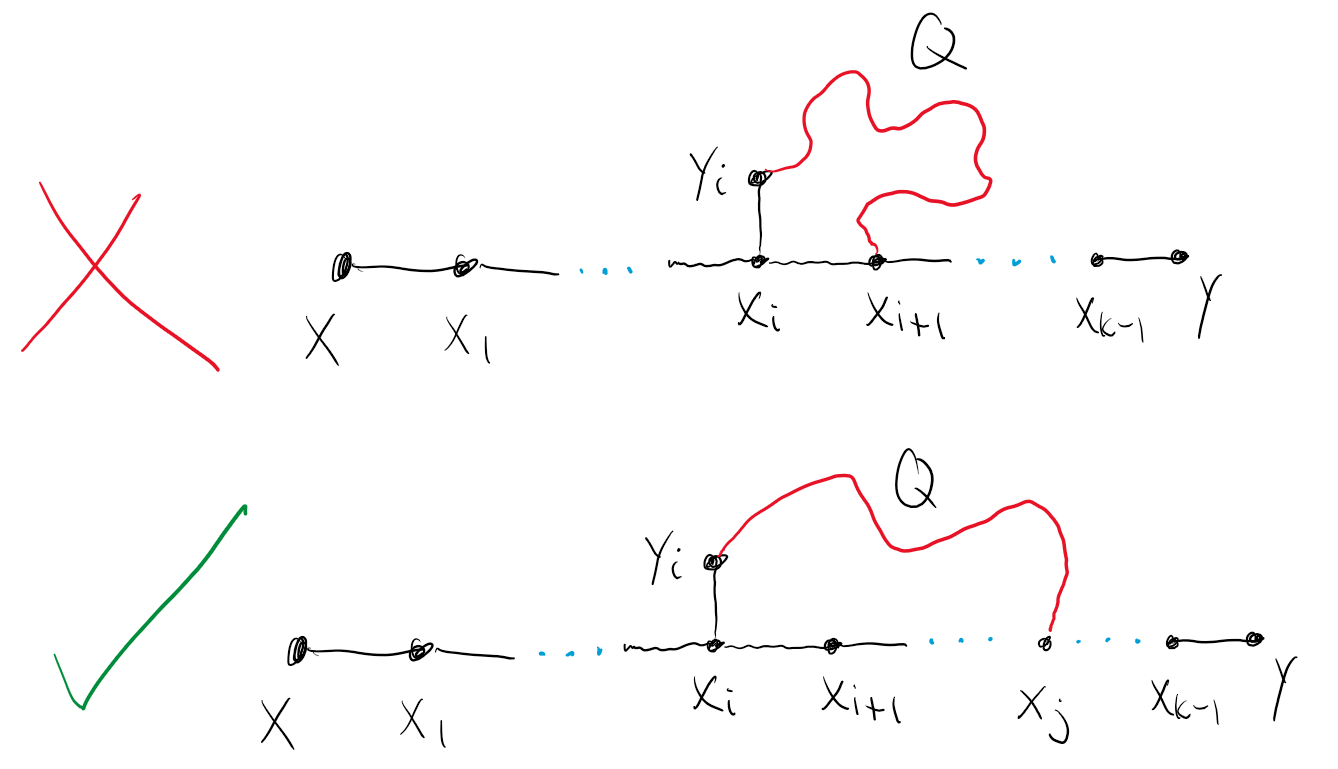 Q
Yi
X X1 Xi Xi+1 Xk-1 Y
Q
Yi
X X1 Xi Xi+1 Xj Xk-1 Y